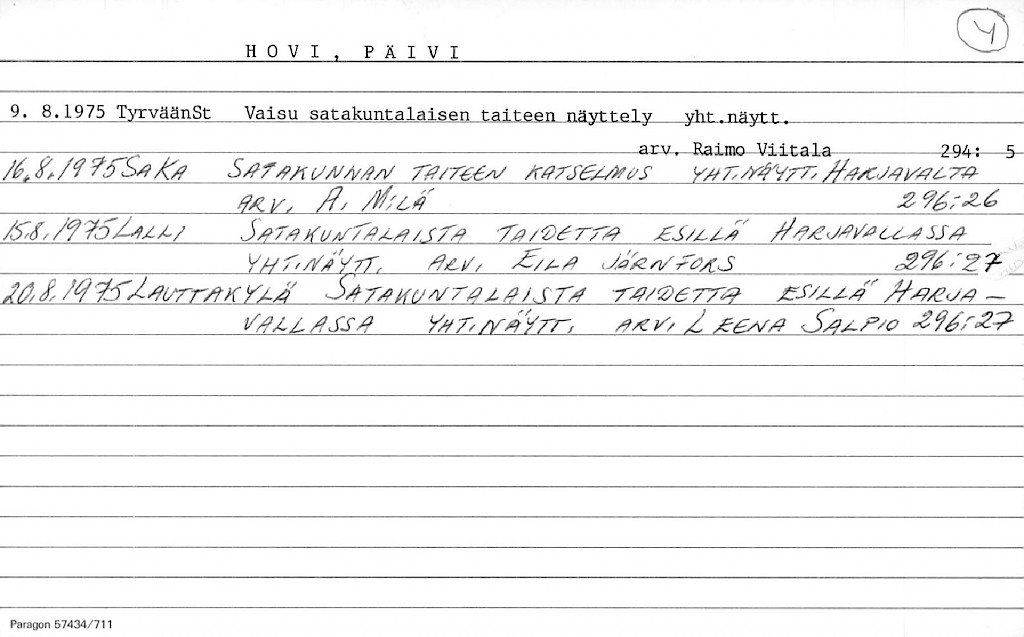 4
HOVI, PÄIVI
9. 8.1975 TyrväänSt Vaisu satakuntalaisen taiteen näyttely yht.näytt.
arv. Raimo Viitala 294: 5
16.8.1975 SAKA SATAKUNNAN TAITEEN KATSELMUS YHT.NÄYTT. HARJAVALTA
ARV. A. MILÄ 296:26
15.8.1975 LALLI SATAKUNTALAISTA TAIDETTA ESILLÄ HARJAVALLASSA
YHT.NÄYTT. ARV. EILA JÄRNFORS 296:27
20.8.1975 LAUTTAKYLÄ SATAKUNTALAISTA TAIDETTA ESILLÄ HARJA-
VALLASSA YHT.NÄYTT. ARV. LEENA SALPIO 296:27
Paragon 57434/711